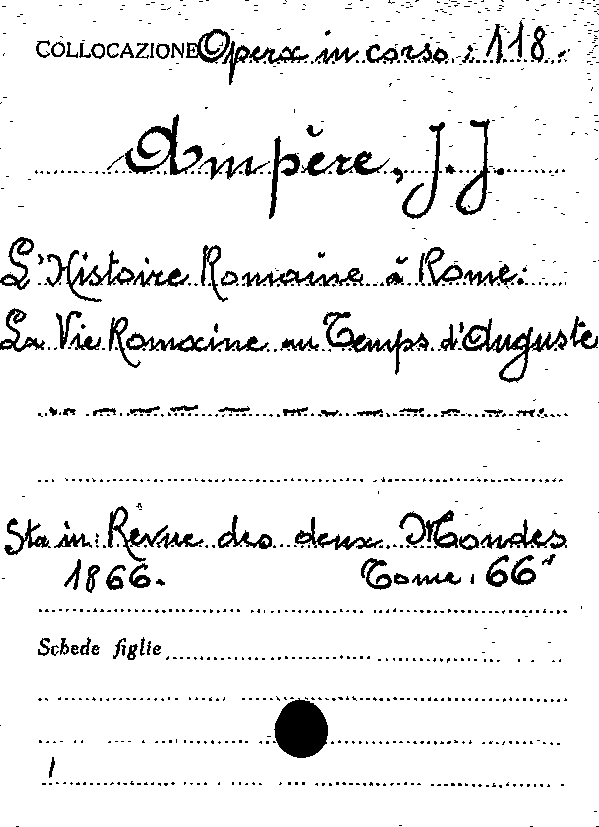 COLLOCAZIONE Opera in corso: 118.
Ampère, J.J.
L'Histoire Romaine à Rome:
La Vie Romaine au Temps d'Auguste
Sta in: Revue des deux Mondes
1866. Tome: 66
Schede figlie